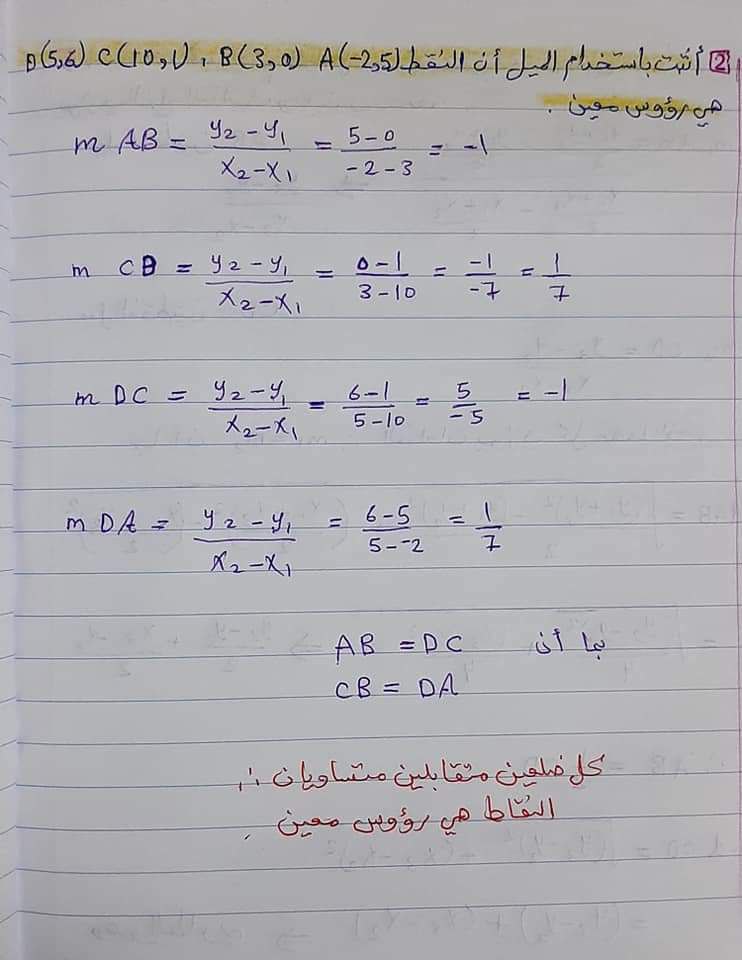 2 أثبت باستخدام الميل أن النقط A(-2,5) B(3,0) , C(10,1) D(5,6)
هي رؤوس معين .
m AB = y2-y1 / x2-x1 = 5-0 / -2-3 = -1
m CB = y2-y1 / x2-x1 = 0-1 / 3-10 = -1 / -7 = 1 / 7
m DC = y2-y1 / x2-x1 = 6-1 / 5-10 = 5 / -5 = -1
m DA = y2-y1 / x2-x1 = 6-5 / 5--2 = 1 / 7
بما أن AB = DC
CB = DA
كل ضلعين متقابلين متساويان ∴
النقاط هي رؤوس معين .